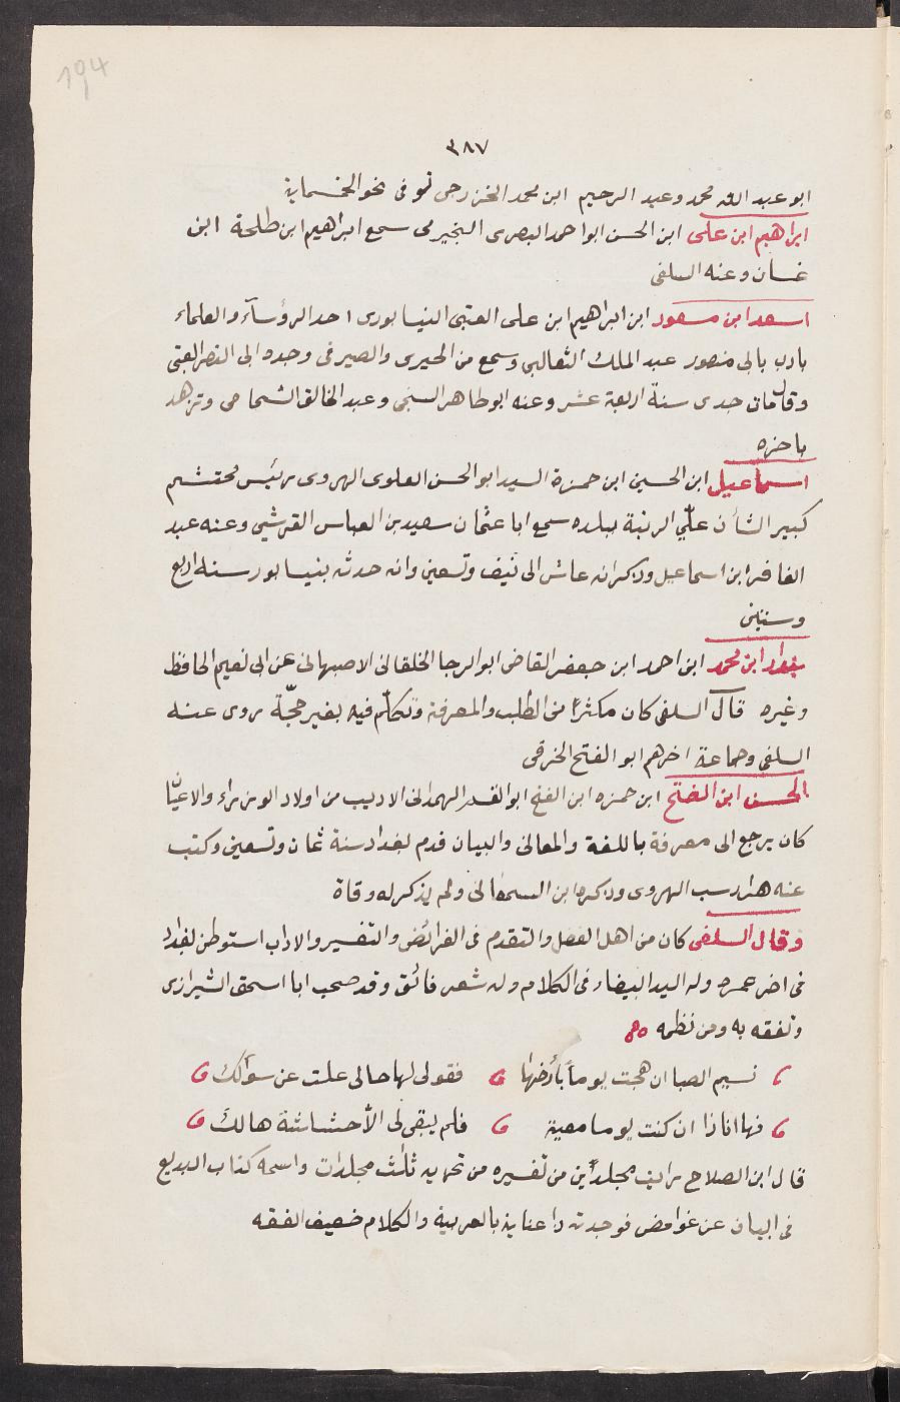 194
٣٨٧
ابو عبد الله محمد وعبد الرحيم ابن محمد الخزرجى توفى نحو الخمماية
ابراهيم ابن على ابن الحسن ابو احمد البصرى النجيرمى سمع ابراهيم ابن طلحة ابن
غسان وعنه السلفى
اسعد ابن مسعود ابن ابراهيم ابن على العتبى النيسابورى احد الرؤسآء والعلماء
بادب بابى منصور عبد الملك الثعالبى وسمع من الحيرى والصيرفى وجده ابى النصر العتبى
وقال مات جدى سنة اربعة عشر وعنه ابو طاهر السنجى وعبد الخالق الشحامى وتزهد
باخره
اسماعيل ابن الحسين ابن حمزة السيد ابو الحسن العلوى الهروى رئيس محتشم
كبير الشأن علّي الرتبة ببلده سمع ابا عثمان سعيد بن العباس القرشى وعنه عبد
الغافر ابن اسماعيل وذكر انه عاش الى نّيف وتسعين وانه حدث بنيسابور سنه اربع
وستين
ابن محمد ابن احمد ابن جعفر القاضى ابو الرجا الخلقانى الاصبهانى عن ابى نعيم الحافظ
وغيره قال السلفى كان مكثرًا من الطلب والمعرفة وتكلّم فيه بغير حجّة روى عنه
السلفى وجماعة اخرهم ابو الفتح الخرقى
الحسن ابن الفتح ابن حمزه ابن الفتح ابو القسم الهمدانى الاديب من اولاد الوزراء والاعيان
كان يرجع الى معرفة باللغة والمعانى والبيان قدم بغداد سنة ثمان وتسعين وكتب
عنه هزارسب الهروى وذكره ابن السمعانى ولم يذكر له وفاة
وقال السلفى كان من اهل الفضل والتقدم فى الفرائض والتفسير والاداب استوطن بغداد
فى اخر عمره وله اليد البيضاء فى الكلام وله شعر فائق وقد صحب ابا اسحق الشيرازى
وتفقه به ومن نظمه
نسيم الصبا ان هجت يوماً بأرضها فقولى لها حالى علت عن سوآلك
فها انا ذا ان كنت يوما مغيثة فلم يبقى لى الأحشاشة هالك
قال ابن الصلاح رايت مجلدين من تفسيره من تجزيه ثلث مجلدات واسمه كتاب البديع
فى البيان عن غوامض فوجدته ذا عناية بالعربية والكلام ضعيف الفقه